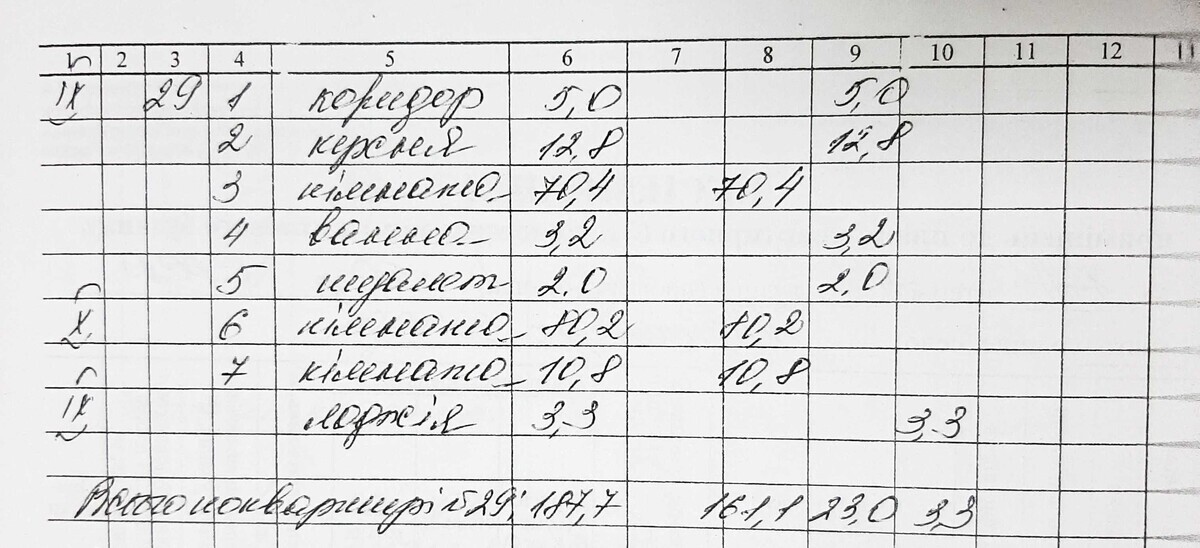 1 2 3 4 5 6 7 8 9 10 11 12
IX 29 1 коридор 5,0 5,0
2 кухня 12,8 12,8
3 кімната 70,4 70,4
4 ванна 3,2 3,2
5 туалет 2,0 2,0
X 6 кімната 80,2 80,2
7 кімната 10,8 10,8
IX лоджія 3,3 3,3
Всього по квартирі №29: 187,7 161,4 23,0 3,3